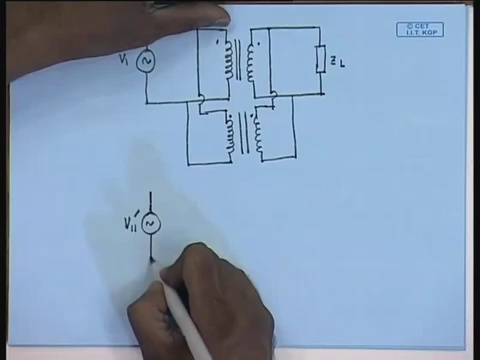 © CET
I.I.T. KGP
V₁
Z L
V₁₁'